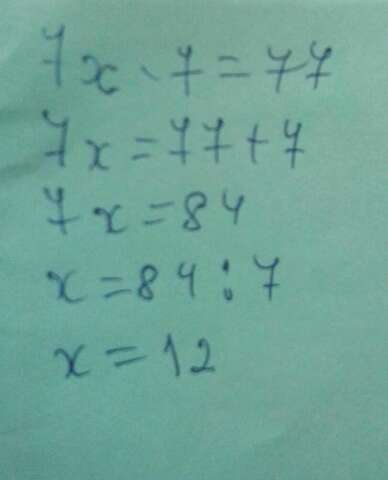 7x - 7 = 77
7x = 77 + 7
7x = 84
x = 84 : 7
x = 12